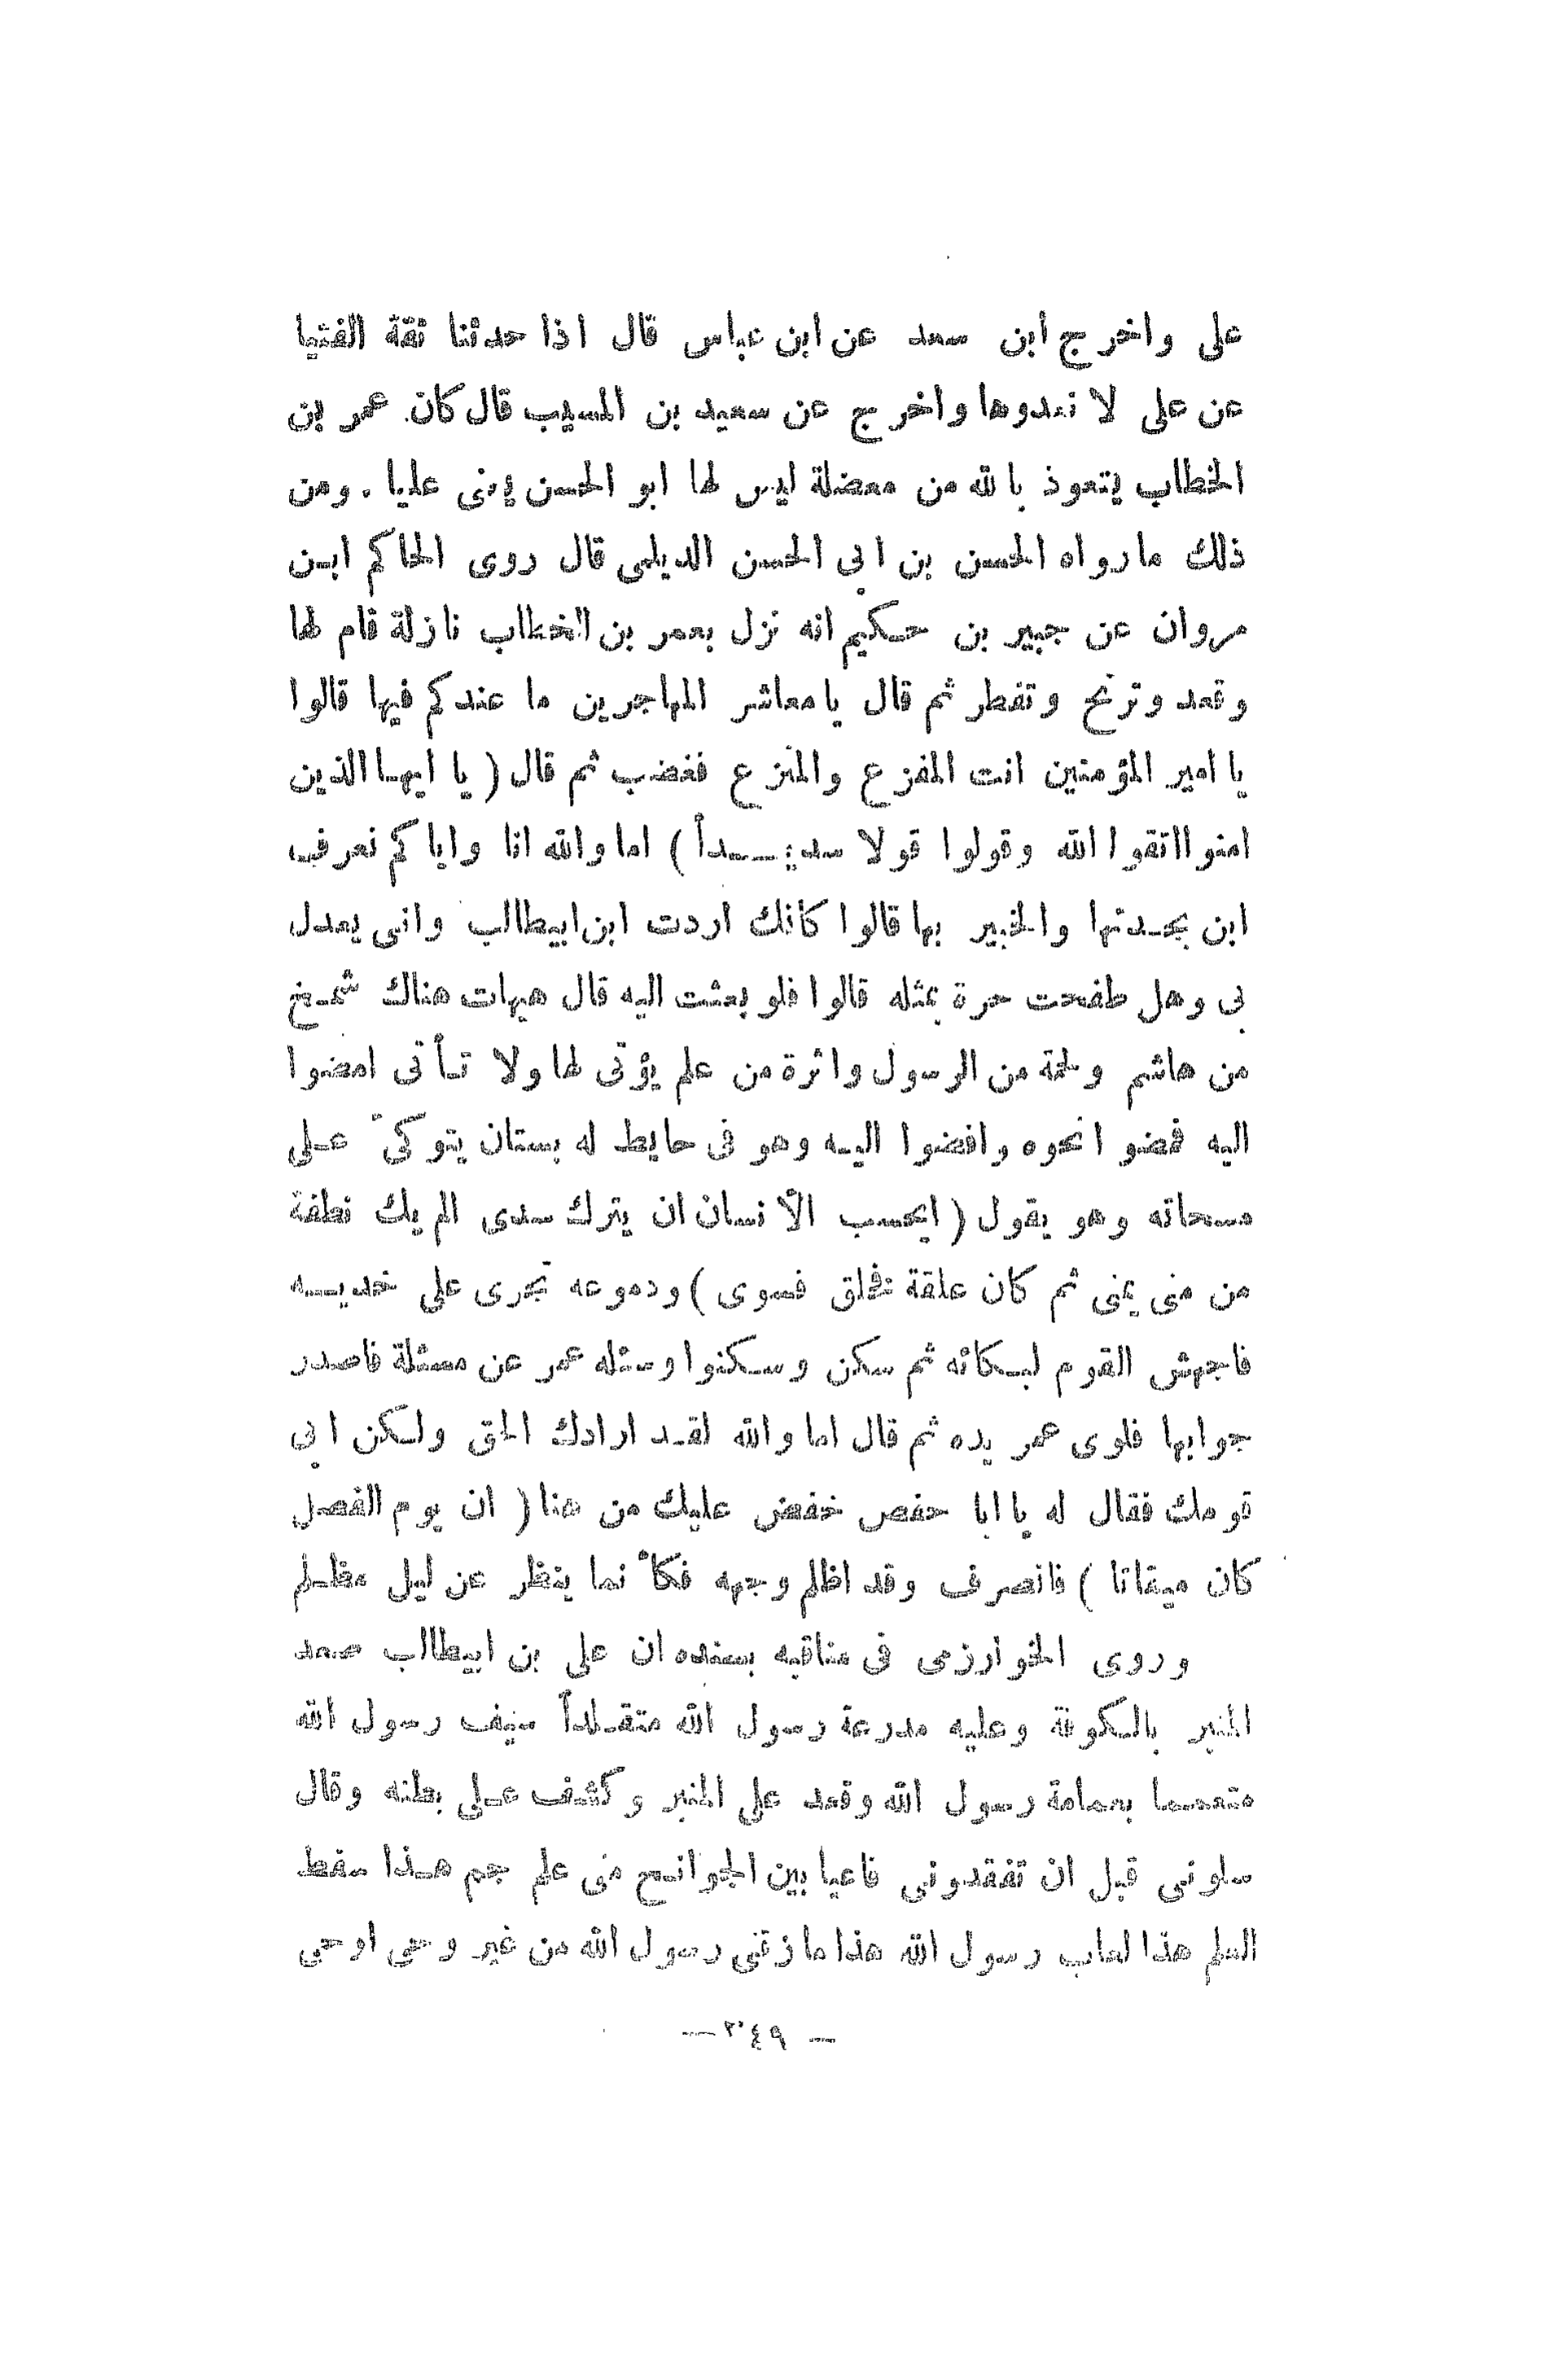 على واخرج ابن سعد عن ابن عباس قال اذا حدثنا ثقة الفتيا
عن على لا نعدوها واخرج عن سعيد بن المسيب قال كان عمر بن
الخطاب يتعوذ بالله من معضلة ليس لها ابو الحسن يعنى عليا . ومن
ذلك مارواه الحسن بن ابي الحسن الديلمى قال روى الحاكم ابن
مروان عن جبير بن حكيم انه نزل بعمر بن الخطاب نازلة قام لها
وقعد وترنح وتفطر ثم قال يامعاشر المهاجرين ما عندكم فيها قالوا
يا امير المؤمنين انت المفزع والمنزع فغضب ثم قال ( يا ايها الذين
امنوا اتقوا الله وقولوا قولا سديداً ) اما والله انا واياكم نعرف
ابن بجدتها والخبير بها قالوا كأنك اردت ابن ابيطالب وانى يعدل
بي وهل طفحت حرة بمثله قالوا فلو بعثت اليه قال هيهات هناك شمخ
من هاشم ولحمة من الرسول واثرة من علم يؤتى لها ولا تأتى امضوا
اليه فمضو انحوه وافضوا اليه وهو فى حايط له بستان يتوكئ على
مسحاته وهو يقول ( ايحسب الأنسان ان يترك سدى الم يك نطفة
من منى يمنى ثم كان علقة فخلق فسوى ) ودموعه تجرى على خديه
فاجهش القوم لبكائه ثم سكن وسكنوا وسئله عمر عن مسئلة فاصدر
جوابها فلوى عمر يده ثم قال اما والله لقد ارادك الحق ولكن ابي
قومك فقال له يا ابا حفص خفض عليك من هنا ( ان يوم الفصل
كان ميقاتا ) فانصرف وقد اظلم وجهه فكأنما ينظر عن ليل مظلم
وروى الخوارزمى فى مناقبه بسنده ان على بن ابيطالب صعد
المنبر بالكوفة وعليه مدرعة رسول الله متقلداً سيف رسول الله
متعمما بعمامة رسول الله وقعد على المنبر وكشف على بطنه وقال
سلونى قبل ان تفقدونى فاعيا بين الجوانح منى علم جم هذا سفط
العلم هذا لعاب رسول الله هذا ما زقنى رسول الله من غير وحى اوحى
— ٢٤٩ —